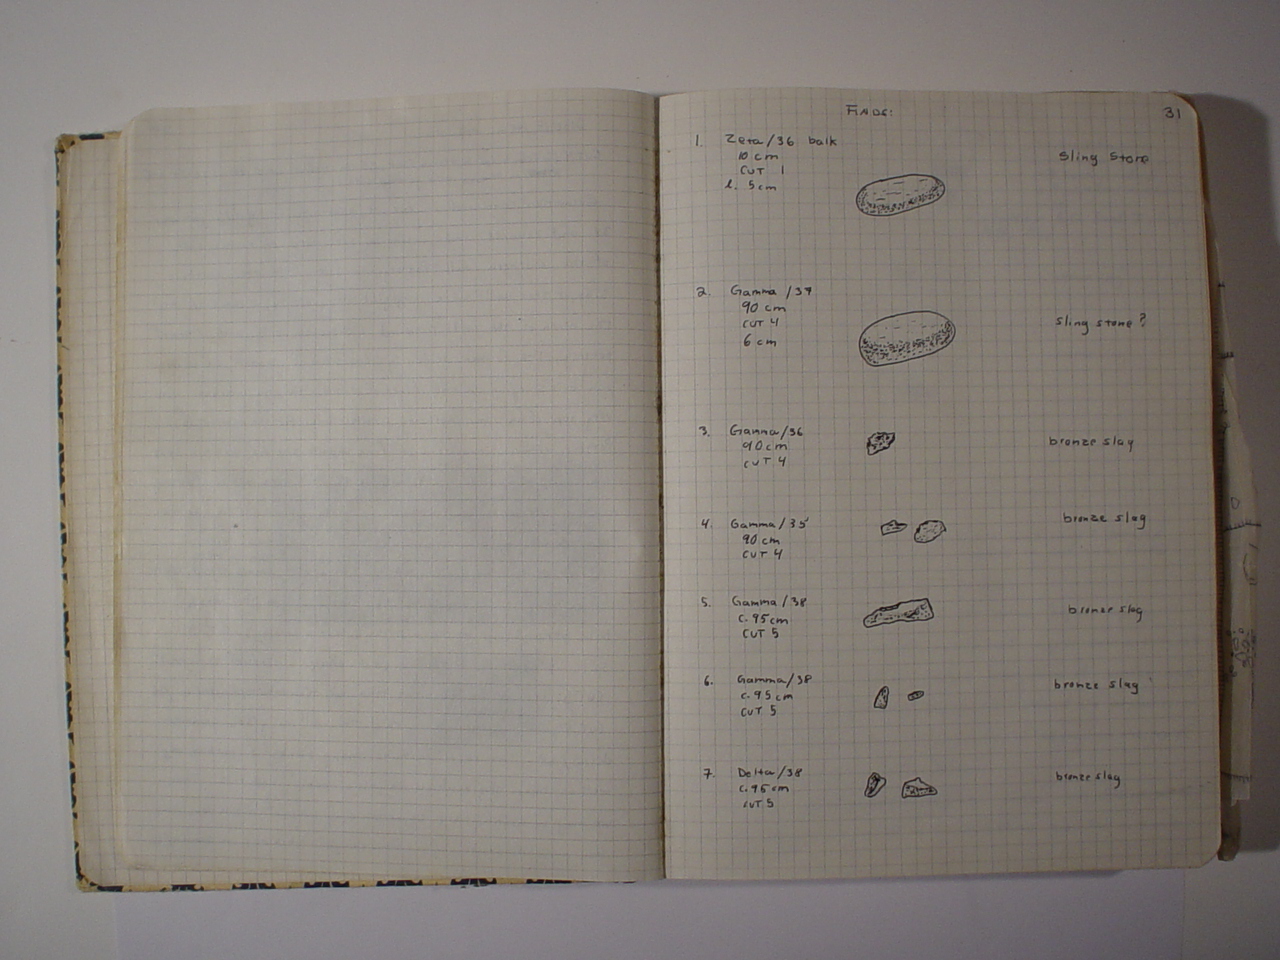 Finds:
31
1. Zeta/36 balk
10 cm
CUT 1
l. 5cm
sling stone
2. Gamma/37
90 cm
CUT 4
6 cm
sling stone?
3. Gamma/36
90cm
CUT 4
bronze slag
4. Gamma/35
90 cm
CUT 4
bronze slag
5. Gamma/38
c. 95cm
CUT 5
bronze slag
6. Gamma/38
c. 95 cm
CUT 5
bronze slag
7. Delta/38
c. 95 cm
CUT 5
bronze slag